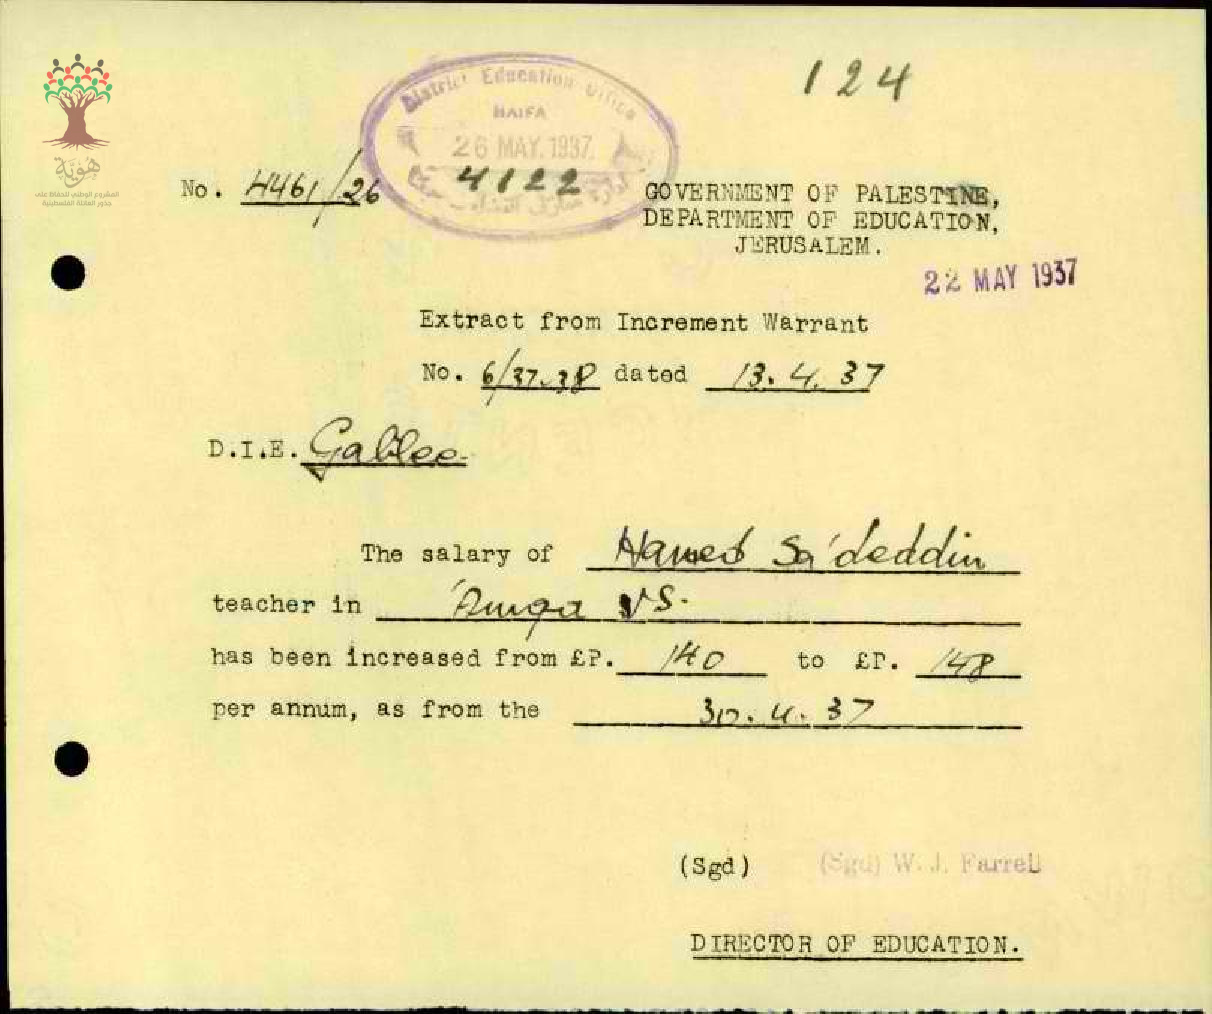 124
هُوِيَّة
المشروع الوطني للحفاظ على
جذور العائلة الفلسطينية
District Education Office
HAIFA
26 MAY. 1937.
4122
No. H461/26
GOVERNMENT OF PALESTINE,
DEPARTMENT OF EDUCATION,
JERUSALEM.
22 MAY 1937
Extract from Increment Warrant
No. 6/37.38 dated 13.4.37
D.I.E. Galilee
The salary of Hamed Sa'deddin
teacher in VS.
has been increased from £P. 140 to £P. 148
per annum, as from the 30.4.37
(Sgd) (Sgd) W. J. Farrell
DIRECTOR OF EDUCATION.